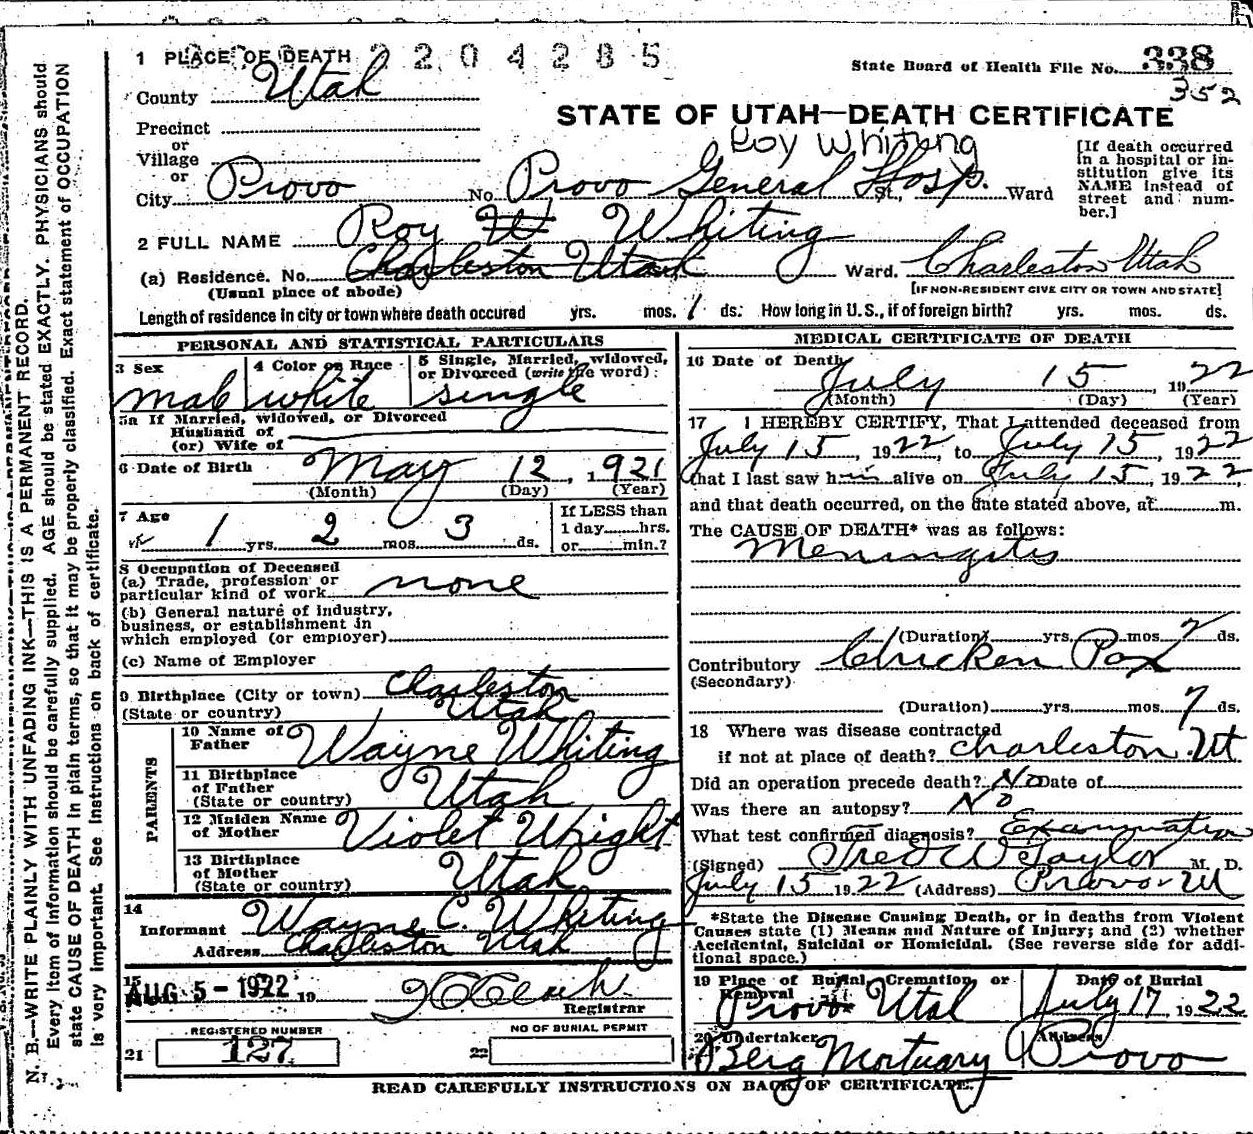 1 PLACE OF DEATH 2204285
State Board of Health File No. 338
352
County Utah
STATE OF UTAH—DEATH CERTIFICATE
Precinct
or
Village
or
City Provo No. Provo General Hosp. St., Ward
Roy Whiting
[If death occurred in a hospital or institution give its NAME instead of street and number.]
2 FULL NAME Roy W Whiting
(a) Residence. No. Charleston Utah Ward. Charleston Utah
(Usual place of abode) [IF NON-RESIDENT GIVE CITY OR TOWN AND STATE]
Length of residence in city or town where death occured yrs. mos. 1 ds. How long in U.S., if of foreign birth? yrs. mos. ds.
PERSONAL AND STATISTICAL PARTICULARS
3 Sex 4 Color or Race 5 Single, Married, widowed,
or Divorced (write the word):
male white single
5a If Married, widowed, or Divorced
Husband of
(or) Wife of
6 Date of Birth May 12, 1921
(Month) (Day) (Year)
7 Age If LESS than
1 yrs. 2 mos. 3 ds. 1 day hrs.
or min.?
8 Occupation of Deceased
(a) Trade, profession or
particular kind of work none
(b) General nature of industry,
business, or establishment in
which employed (or employer)
(c) Name of Employer
9 Birthplace (City or town) Charleston
(State or country) Utah
PARENTS
10 Name of
Father Wayne Whiting
11 Birthplace
of Father
(State or country) Utah
12 Maiden Name
of Mother Violet Wright
13 Birthplace
of Mother
(State or country) Utah
14
Informant Wayne C. Whiting
Address Charleston Utah
15 AUG 5 - 1922 19
Registrar
REGISTERED NUMBER NO OF BURIAL PERMIT
21 127 22
MEDICAL CERTIFICATE OF DEATH
16 Date of Death
July 15 1922
(Month) (Day) (Year)
17 I HEREBY CERTIFY, That I attended deceased from
July 15, 1922, to July 15, 1922
that I last saw him alive on July 15, 1922,
and that death occurred, on the date stated above, at m.
The CAUSE OF DEATH* was as follows:
Meningitis
(Duration) yrs. mos. 7 ds.
Contributory Chicken Pox
(Secondary)
(Duration) yrs. mos. 7 ds.
18 Where was disease contracted
if not at place of death? Charleston Ut
Did an operation precede death? No Date of
Was there an autopsy? No
What test confirmed diagnosis? Examination
(Signed) Fred W Taylor M. D.
July 15 1922 (Address) Provo Ut
*State the Disease Causing Death, or in deaths from Violent
Causes state (1) Means and Nature of Injury; and (2) whether
Accidental, Suicidal or Homicidal. (See reverse side for addi-
tional space.)
19 Place of Burial, Cremation or Date of Burial
Removal
Provo Utah July 17, 1922
20 Undertaker Address
Berg Mortuary Provo
READ CAREFULLY INSTRUCTIONS ON BACK OF CERTIFICATE.
N. B.—WRITE PLAINLY WITH UNFADING INK—THIS IS A PERMANENT RECORD.
Every item of information should be carefully supplied. AGE should be stated EXACTLY. PHYSICIANS should
state CAUSE OF DEATH in plain terms, so that it may be properly classified. Exact statement of OCCUPATION
is very important. See instructions on back of certificate.